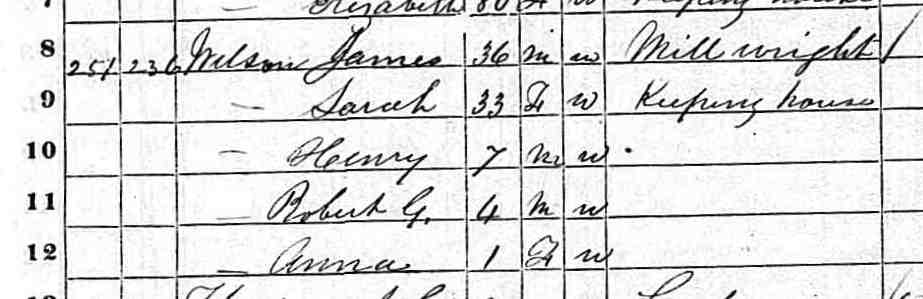 Elizabeth 80 F w Keeping house
8 251 236 Wilson James 36 m w Mill wright /
9 — Sarah 33 F w Keeping house
10 — Henry 7 m w
11 — Robert G. 4 m w
12 — Anna 1 F w